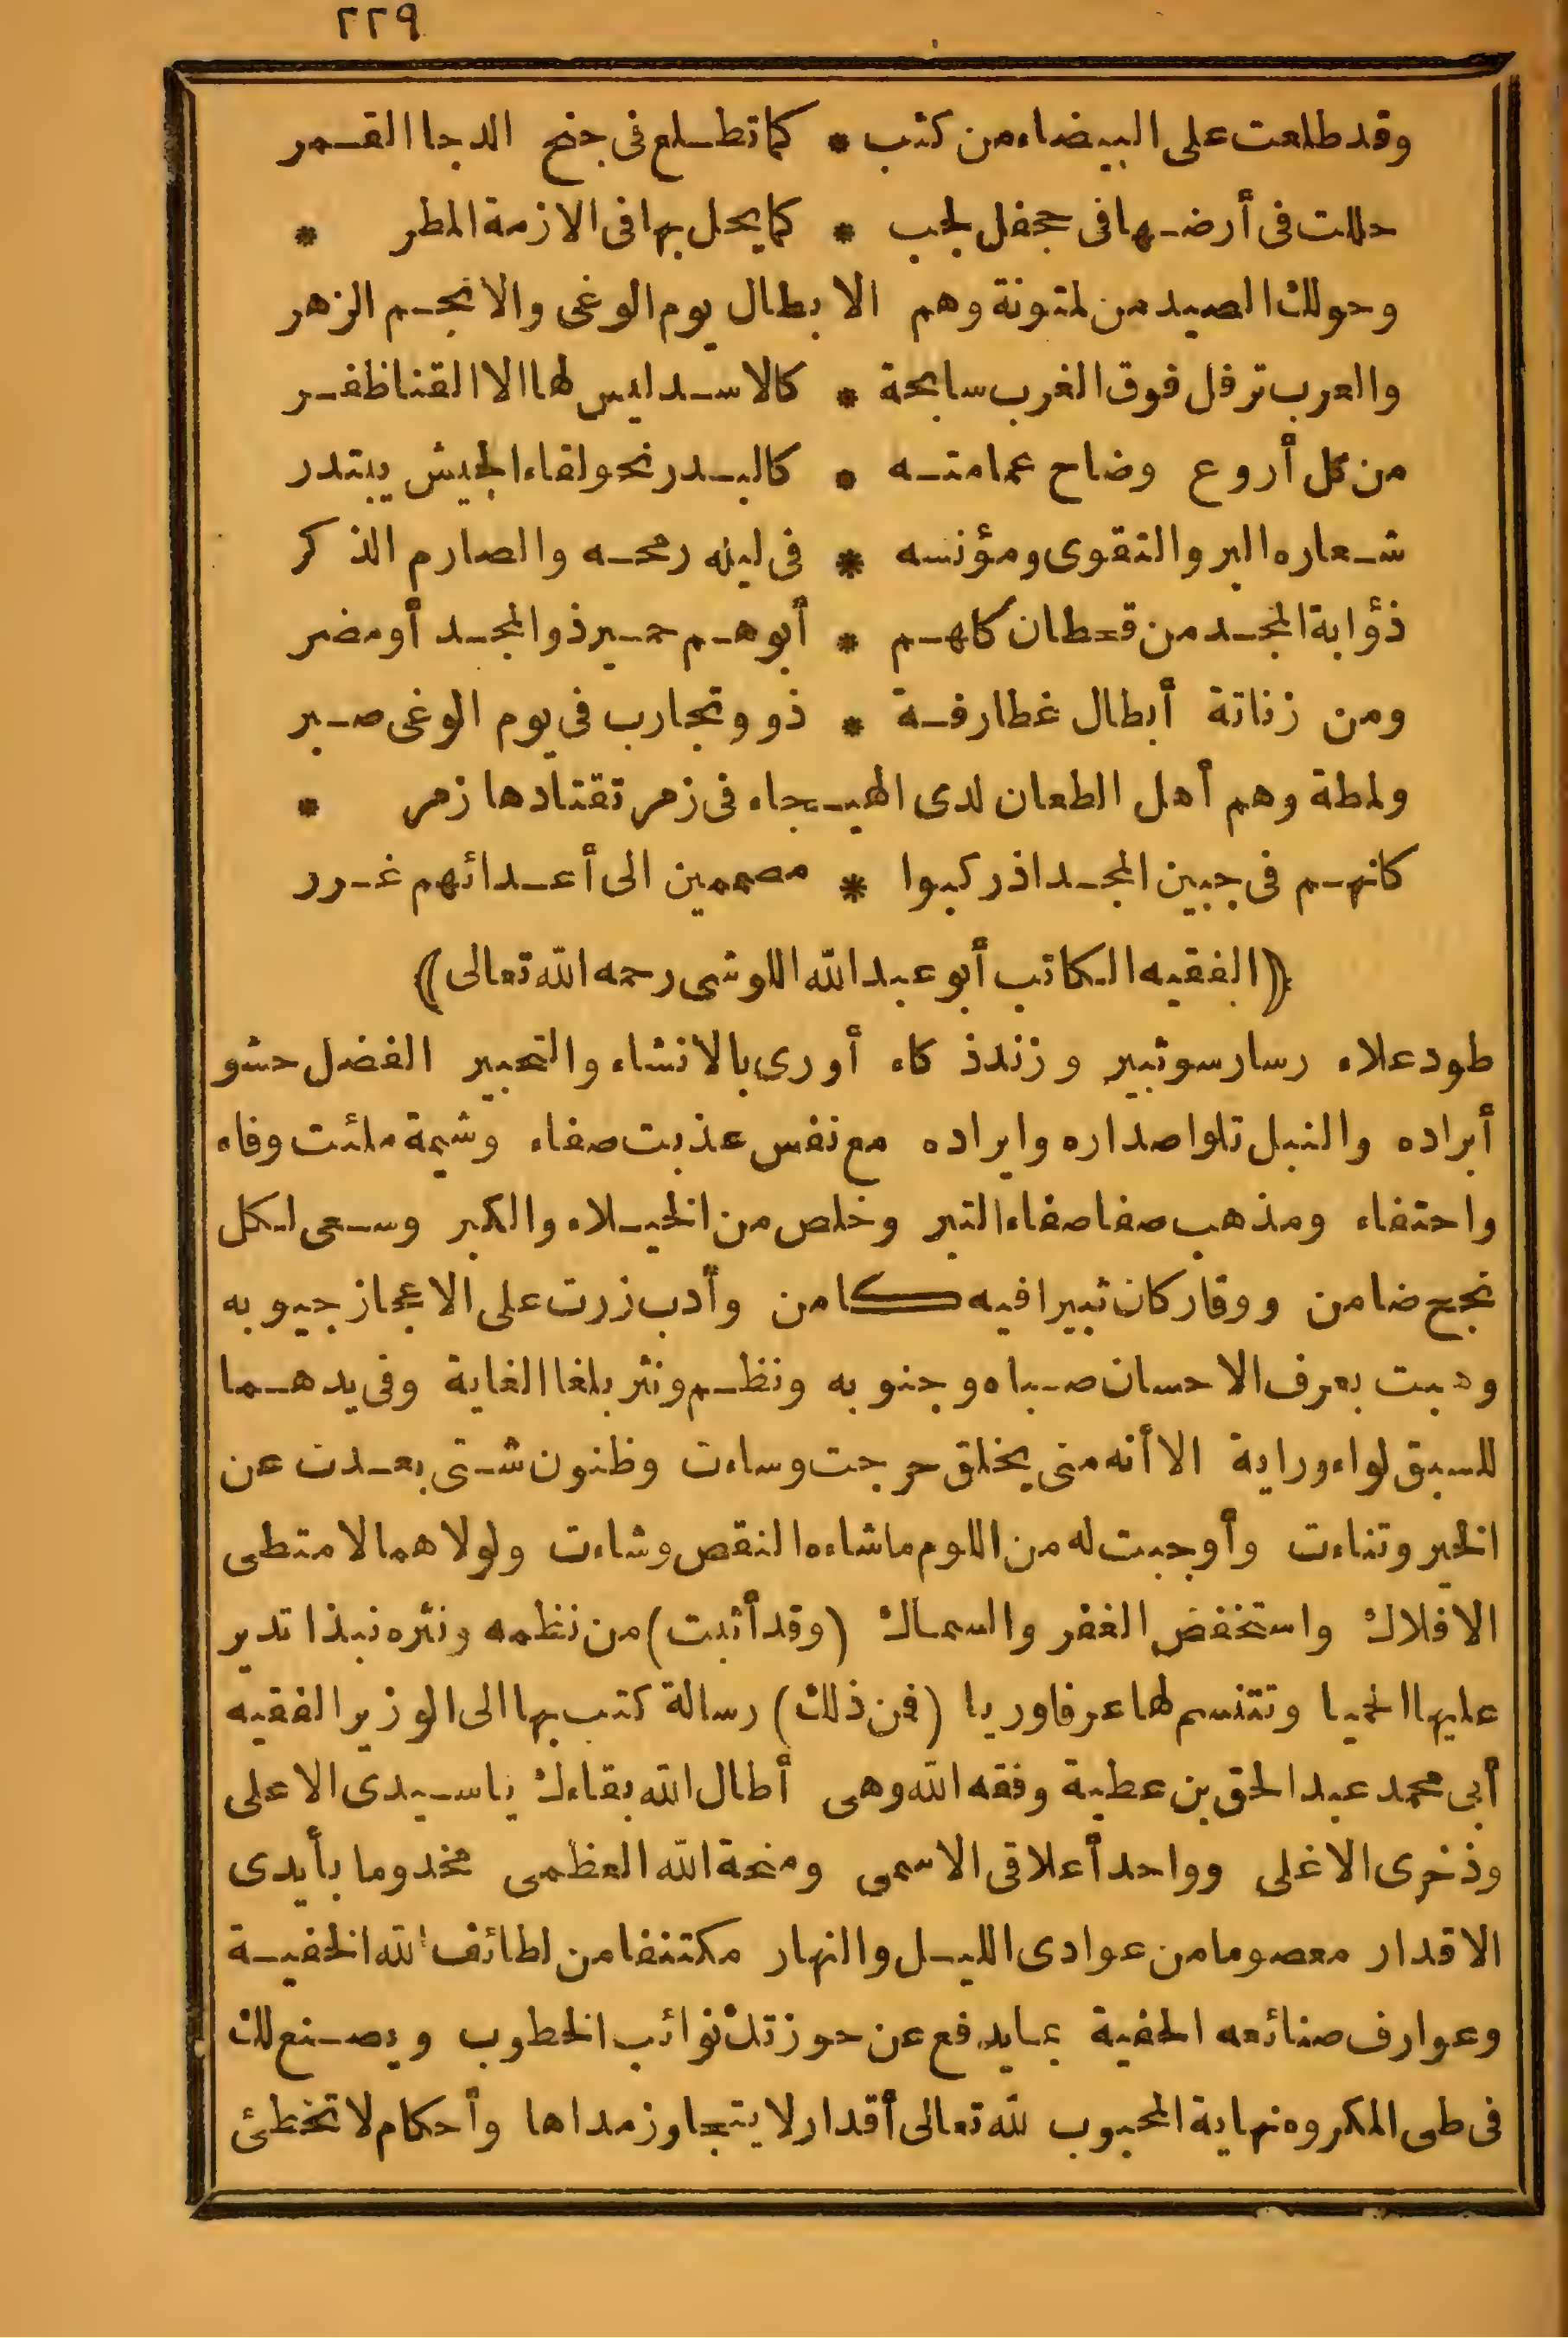 ٢٢٩
وقد طلعت على البيضاء من كثب * كما تطلع فى جنح الدجا القمر
حللت فى أرضها فى جحفل لجب * كما يحل بها فى الازمة المطر *
وحولك الصيد من لمتونة وهم الابطال يوم الوغى والانجم الزهر
والعرب ترفل فوق الغرب سابحة * كالاسد ليس لها الا القنا ظفر
من كل أروع وضاح عمامته * كالبدر نحو لقاء الجيش يبتدر
شعاره البر والتقوى ومؤنسه * فى ليله رمحه والصارم الذكر
ذؤابة المجد من قحطان كلهم * أبوهم حمير ذو المجد أو مضر
ومن زناتة أبطال غطارفة * ذو وتجارب فى يوم الوغى صبر
ولمطة وهم أهل الطعان لدى الهيجاء فى زمر تقتادها زمر *
كانهم فى جبين المجد اذ ركبوا * مصممين الى أعدائهم غرر
﴿الفقيه الكاتب أبو عبد الله اللوشى رحمه الله تعالى﴾
طود علاء رسا رسو ثبير وزند ذكاء أورى بالانشاء والتحبير الفضل حشو
أبراده والنبل تلو اصداره وايراده مع نفس عذبت صفاء وشيمة ملئت وفاء
واحتفاء ومذهب صفا صفاء التبر وخلص من الخيلاء والكبر وسعى لكل
نجح ضامن ووقار كان ثبيرا فيه كامن وأدب زرت على الاعجاز جيوبه
وهبت بعرف الاحسان صباه وجنوبه ونظم ونثر بلغا الغاية وفى يدهما
للسبق لواء وراية الا أنه منى بخلق حرجت وساءت وظنون شتى بعدت عن
الخير وتناءت وأوجبت له من اللوم ما شاءه النقص وشاءت ولولاهما لامتطى
الافلاك واستخفض الغفر والسماك (وقد أثبت) من نظمه ونثره نبذا تدير
عليها الحميا وتتنسم لها عرفا وريا (فمن ذلك) رسالة كتب بها الى الوزير الفقيه
أبى محمد عبد الحق بن عطية وفقه الله وهى أطال الله بقاءك يا سيدى الاعلى
وذخرى الاغلى وواحد أعلاقى الاسمى ومنحة الله العظمى مخدوما بأيدى
الاقدار معصوما من عوادى الليل والنهار مكتنفا من لطائف الله الخفية
وعوارف صنائعه الحفية بما يدفع عن حوزتك نوائب الخطوب ويصنع لك
فى طى المكروه نهاية المحبوب لله تعالى أقدار لا يتجاوز مداها وأحكام لا تخطئ